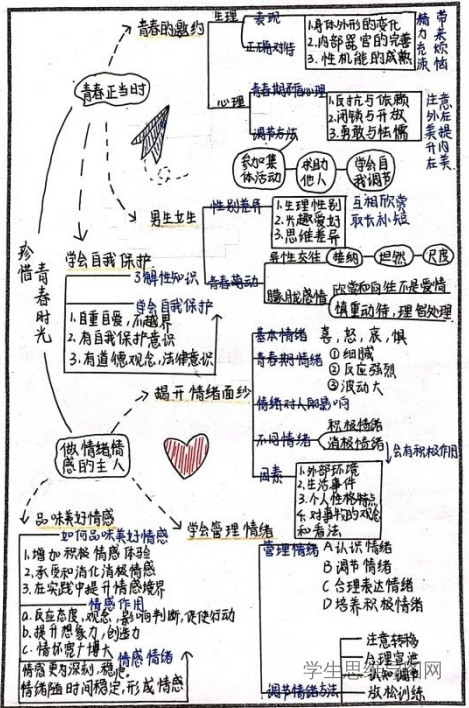 珍惜青春时光
青春正当时
青春的邀约
生理
表现
正确对待
1.身体外形的变化
2.内部器官的完善
3.性机能的成熟
带来烦恼
精力充沛
心理
青春期矛盾心理
1.反抗与依赖
2.闭锁与开放
3.勇敢与怯懦
注意外在美
提升内在美
调节方法
参加集体活动
求助他人
学会自我调节
男生女生
性别差异
1.生理性别
2.兴趣爱好
3.思维差异
互相欣赏
取长补短
青春萌动
异性交往
接纳
坦然
尺度
朦胧感情
欣赏和向往不是爱情
慎重动待,理智处理
学会自我保护
了解性知识
学会自我保护
1.自重自爱,不越界
2.有自我保护意识
3.有道德观念,法律意识
做情绪情感的主人
揭开情绪面纱
基本情绪 喜,怒,哀,惧
青春期情绪
①细腻
②反应强烈
③波动大
情绪对人的影响
不同情绪
积极情绪
消极情绪
会有积极作用
因素
1.外部环境
2.生活事件
3.个人性格特点
4.对事物的观念和看法
学会管理情绪
管理情绪
A认识情绪
B调节情绪
C合理表达情绪
D培养积极情绪
调节情绪方法
注意转移
合理宣泄
认知调节
放松训练
品味美好情感
如何品味美好情感
1.增加积极情感体验
2.承受和消化消极情感
3.在实践中提升情感境界
情感作用
a.反应态度,观念,影响判断,促使行动
b.提升想象力,创造力
c.情怀宽广博大
情感情绪
情感更为深刻,稳定。
情绪随时间稳定,形成情感
学生思维导图网